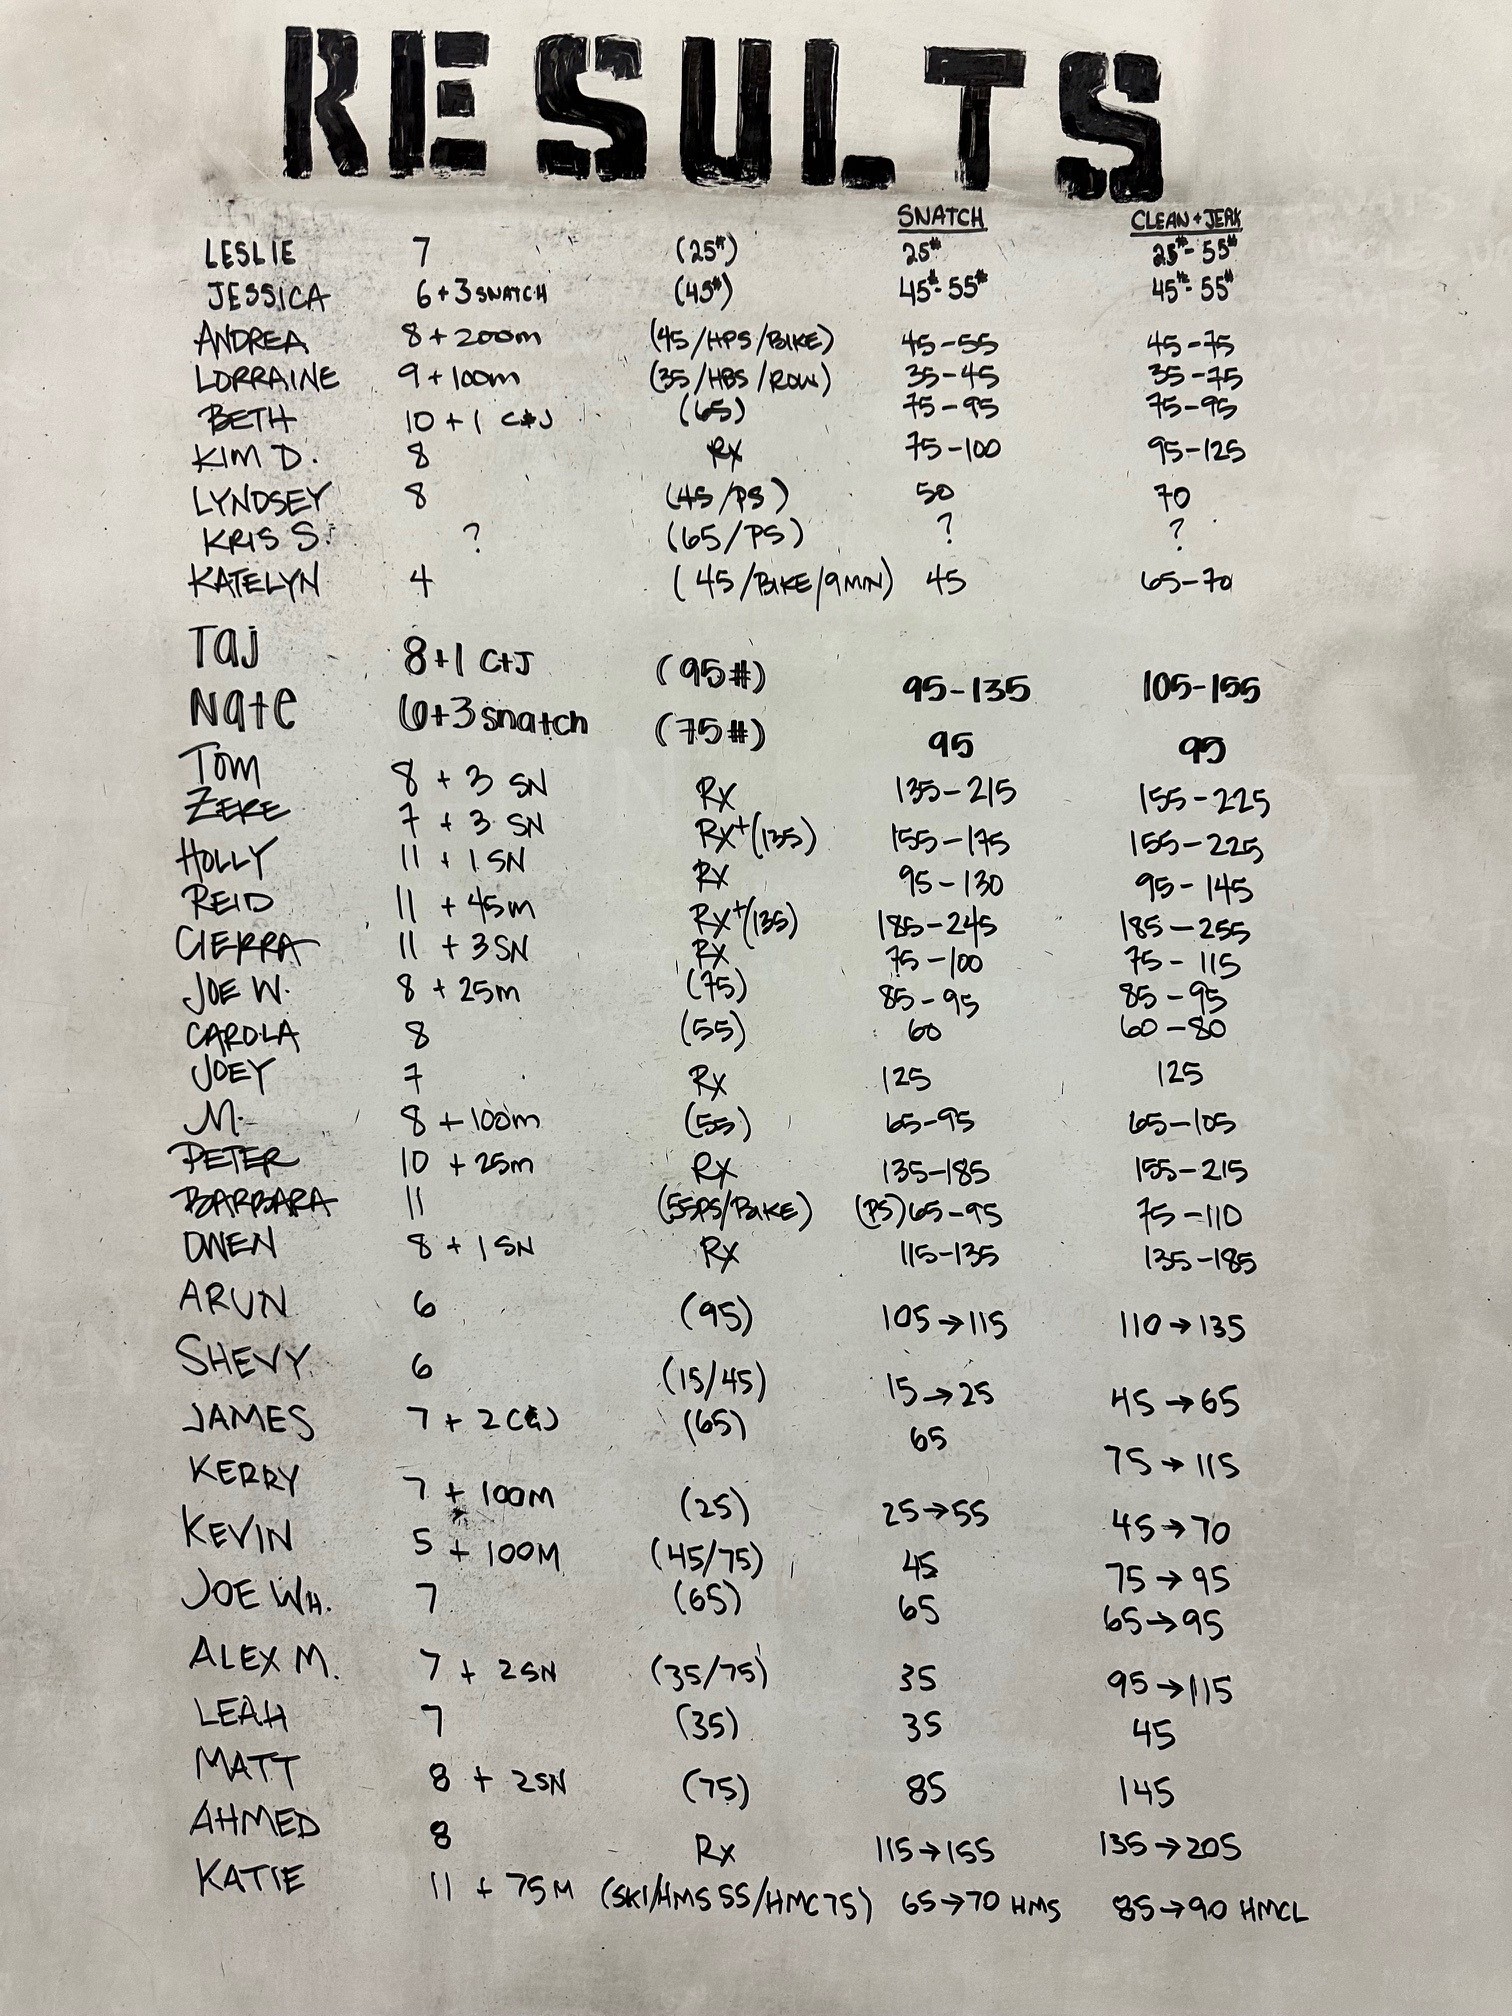 RESULTS
SNATCH CLEAN + JERK
LESLIE 7 (25#) 25# 25#- 55#
JESSICA 6 + 3 SNATCH (45#) 45#- 55# 45#- 55#
ANDREA 8 + 200m (45/HPS/BIKE) 45-55 45-75
LORRAINE 9 + 100m (35/HBS/ROW) 35-45 35-75
BETH 10 + 1 C&J (65) 75-95 75-95
KIM D. 8 RX 75-100 95-125
LYNDSEY 8 (45/PS) 50 70
KRIS S. ? (65/PS) ? ?
KATELYN 4 (45/BIKE/9MIN) 45 65-70
Taj 8+1 C+J (95#) 95-135 105-155
Nate 6+3 snatch (75#) 95 95
Tom 8 + 3 SN RX 135-215 155-225
ZEKE 7 + 3 SN RX+(135) 155-175 155-225
HOLLY 11 + 1 SN RX 95-130 95-145
REID 11 + 45m RX+(135) 185-245 185-255
CIERRA 11 + 3 SN RX 75-100 75-115
JOE W. 8 + 25m (75) 85-95 85-95
CAROLA 8 (55) 60 60-80
JOEY 7 RX 125 125
M. 8 + 100m (55) 65-95 65-105
PETER 10 + 25m RX 135-185 155-215
BARBARA 11 (55PS/BIKE) (PS)65-95 75-110
OWEN 8 + 1 SN RX 115-135 135-185
ARUN 6 (95) 105→115 110→135
SHEVY 6 (15/45) 15→25 45→65
JAMES 7 + 2 C&J (65) 65 75→115
KERRY 7 + 100M (25) 25→55 45→70
KEVIN 5 + 100M (45/75) 45 75→95
JOE WH. 7 (65) 65 65→95
ALEX M. 7 + 2SN (35/75) 35 95→115
LEAH 7 (35) 35 45
MATT 8 + 2SN (75) 85 145
AHMED 8 RX 115→155 135→205
KATIE 11 + 75M (SKI/HMS 55/HMC 75) 65→70 HMS 85→90 HMCL